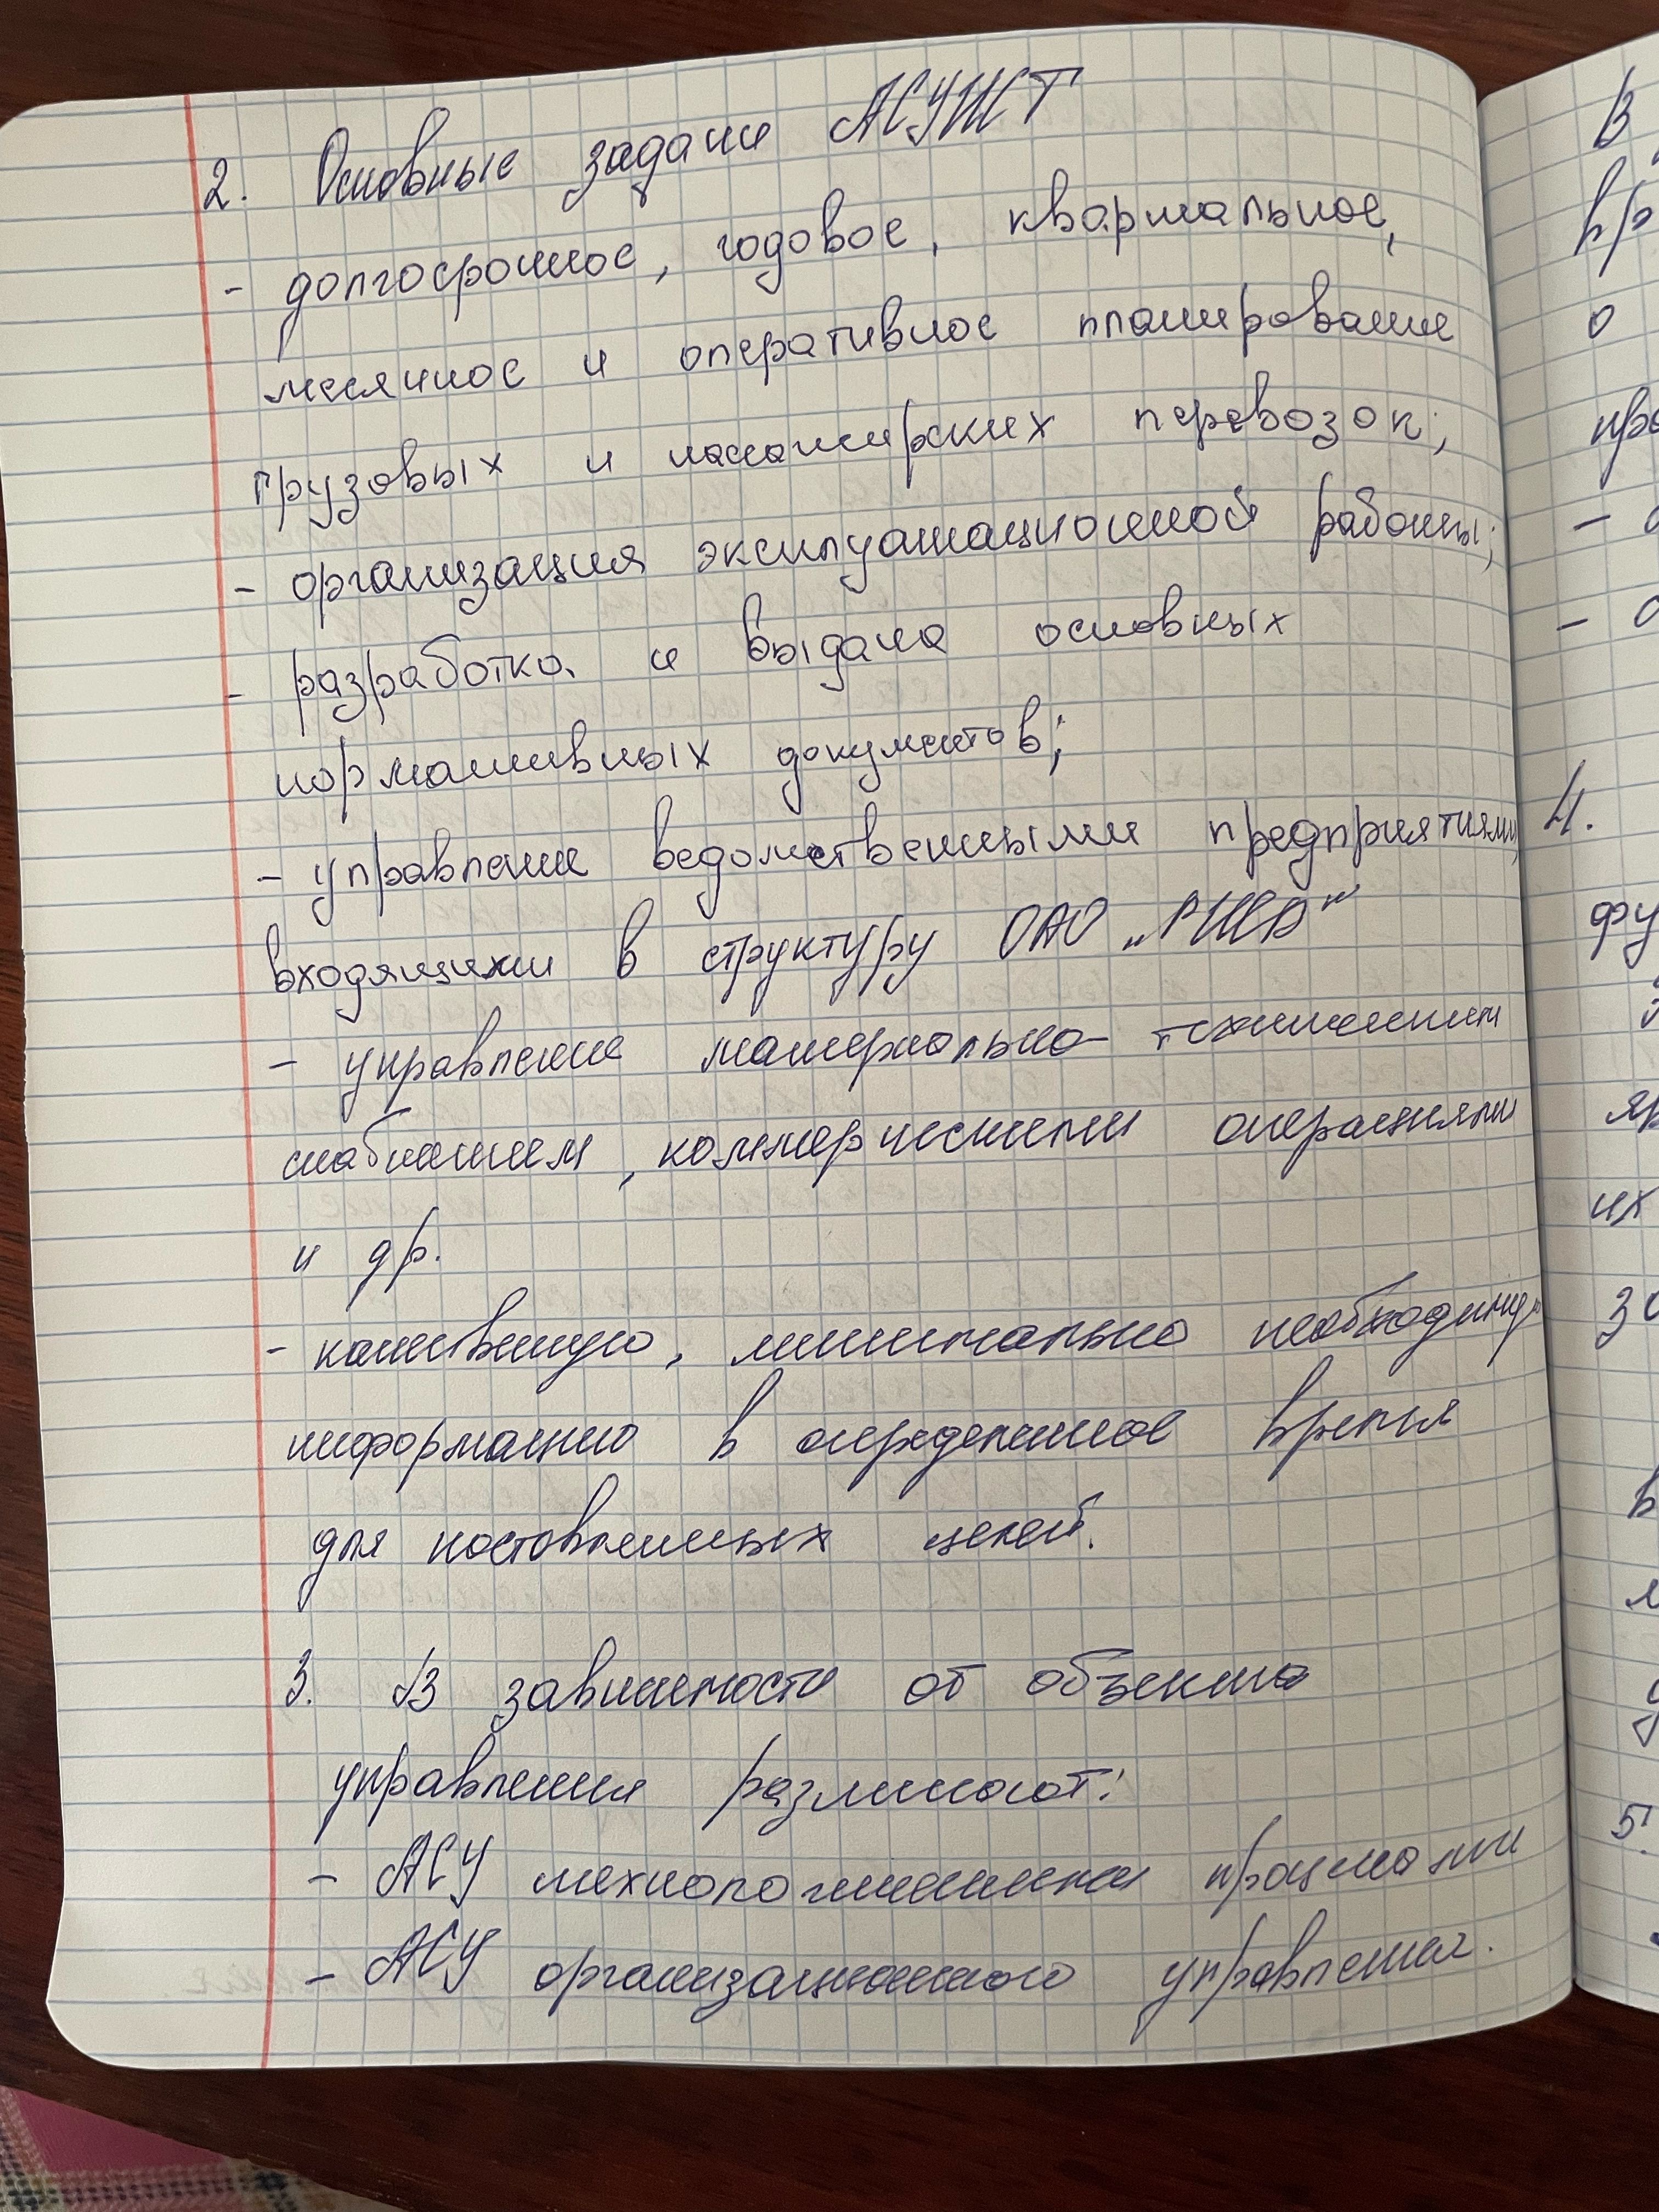 2. Основные задачи АСУЖТ
- долгосрочное, годовое, квартальное,
месячное и оперативное планирование
грузовых и пассажирских перевозок;
- организация эксплуатационной работы;
- разработка и выдача основных
нормативных документов;
- управление ведомственными предприятиями,
входящими в структуру ОАО „РЖД"
- управление материально-техническим
снабжением, коммерческими операциями
и др.
- качественную, минимально необходимую
информацию в определенное время
для поставленных целей.
3. В зависимости от объекта
управления различают:
- АСУ технологическими процессами
- АСУ организационного управления.
В
вр
о
про
-
-
4.
фу
яв
их
зо
в
м
у
5.